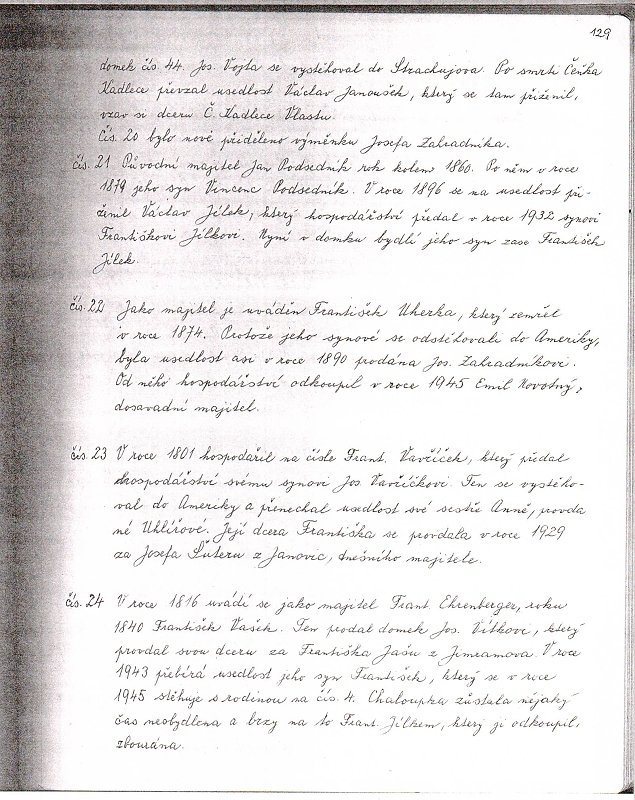 129
domek čís. 44. Jos. Vojta se vystěhoval do Strachujova. Po smrti Čeňka
Kadlece převzal usedlost Václav Janoušek, který se tam přiženil,
vzav si dceru Č. Kadlece Vlastu.
Čís. 20 bylo nově přiděleno výměnku Josefa Zahradníka.
čís. 21 Původní majitel Jan Podsedník rok kolem 1860. Po něm v roce
1879 jeho syn Vincenc Podsedník. V roce 1896 se na usedlost při-
ženil Václav Jílek, který hospodářství předal v roce 1932 synovi
Františkovi Jílkovi. Nyní v domku bydlí jeho syn zase František
Jílek.
čís. 22 Jako majitel je uváděn František Uherka, který zemřel
v roce 1874. Protože jeho synové se odstěhovali do Ameriky,
byla usedlost asi v roce 1890 prodána Jos. Zahradníkovi.
Od něho hospodářství odkoupil v roce 1945 Emil Novotný,
dosavadní majitel.
čís. 23 V roce 1801 hospodařil na čísle Frant. Vavříček, který předal
hospodářství svému synovi Jos. Vavříčkovi. Ten se vystěho-
val do Ameriky a přenechal usedlost své sestře Anně, provda
né Uhlířové. Její dcera Františka se provdala v roce 1929
za Josefa Šuteru z Janovic, dnešního majitele.
čís. 24 V roce 1816 uvádí se jako majitel Frant. Ehrenberger, roku
1840 František Vašek. Ten prodal domek Jos. Vítkovi, který
provdal svou dceru za Františka Jašu z Jimramova. V roce
1943 přebírá usedlost jeho syn František, který se v roce
1945 stěhuje s rodinou na čís. 4. Chaloupka zůstala nějaký
čas neobydlena a brzy na to Frant. Jílkem, který ji odkoupil,
zbourána.